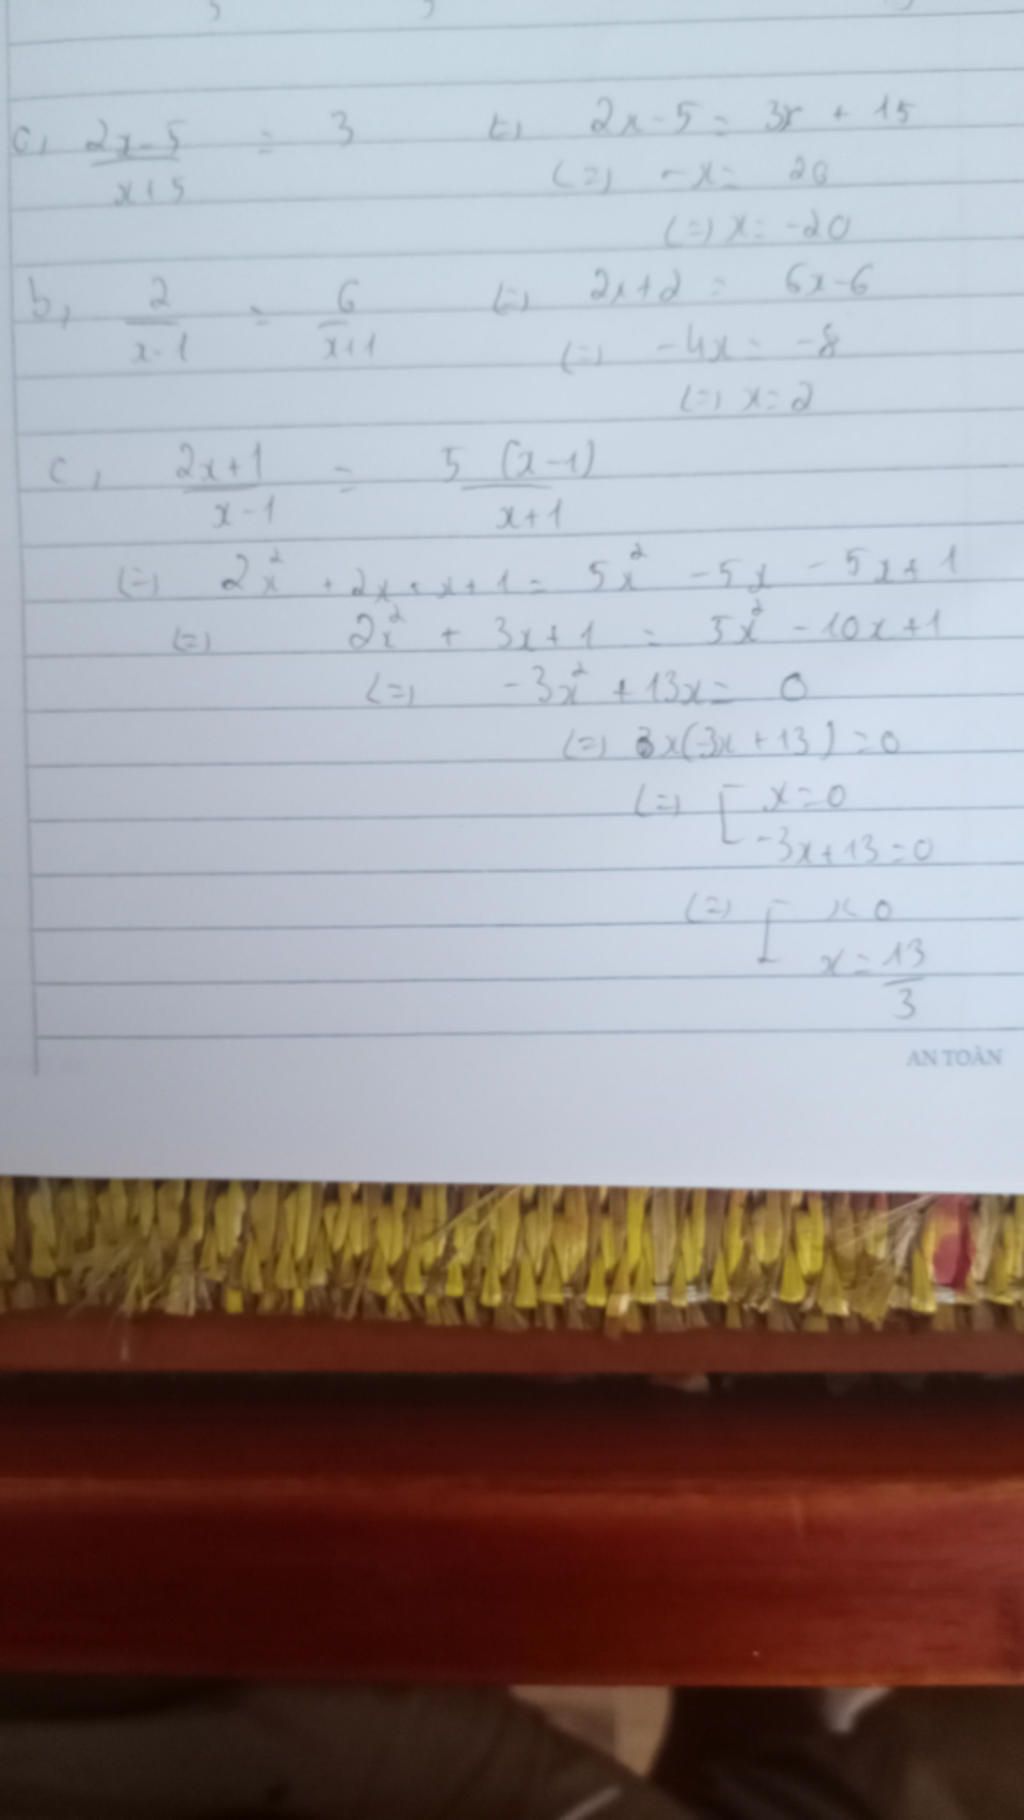 a, (2x-5)/(x+5) = 3 (=) 2x-5 = 3x + 15
(=) -x = 20
(=) x = -20
b, 2/(x-1) = 6/(x+1) (=) 2x+2 = 6x-6
(=) -4x = -8
(=) x = 2
c, (2x+1)/(x-1) = 5(x-1)/(x+1)
(=) 2x² + 2x + x + 1 = 5x² - 5x - 5x + 1
(=) 2x² + 3x + 1 = 5x² - 10x + 1
(=) -3x² + 13x = 0
(=) x(-3x + 13) = 0
(=) [ x = 0
-3x + 13 = 0
(=) [ x = 0
x = 13/3
AN TOÀN